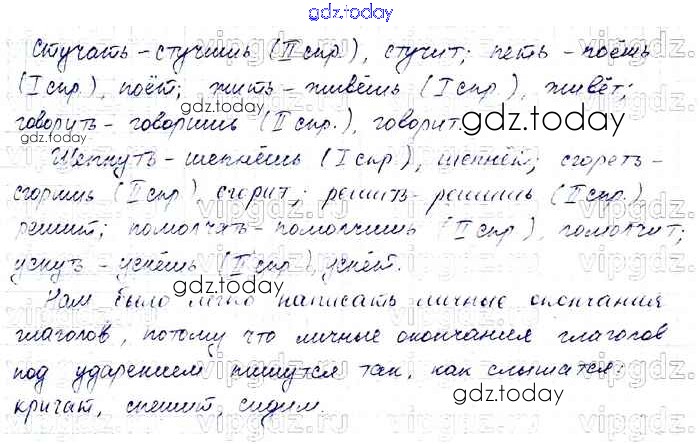 gdz.today
Стучать – стучишь (II спр.), стучит; петь – поёшь
(I спр.), поёт; жить – живёшь (I спр.), живёт;
gdz.today
говорить – говоришь (II спр.), говорит.
gdz.today
Шепнуть – шепнёшь (I спр.), шепнёт; сгореть –
сгоришь (II спр.) сгорит; решить – решишь (II спр.)
gdz.today
vipgdz.ru
решит; помолчать – помолчишь (II спр.), помолчит;
уснуть – уснёшь (I спр.), уснёт.
gdz.today
Нам было легко написать личные окончания
глаголов, потому что личные окончания глаголов
под ударением пишутся так, как слышатся:
кричат, спешит, сидим.
gdz.today